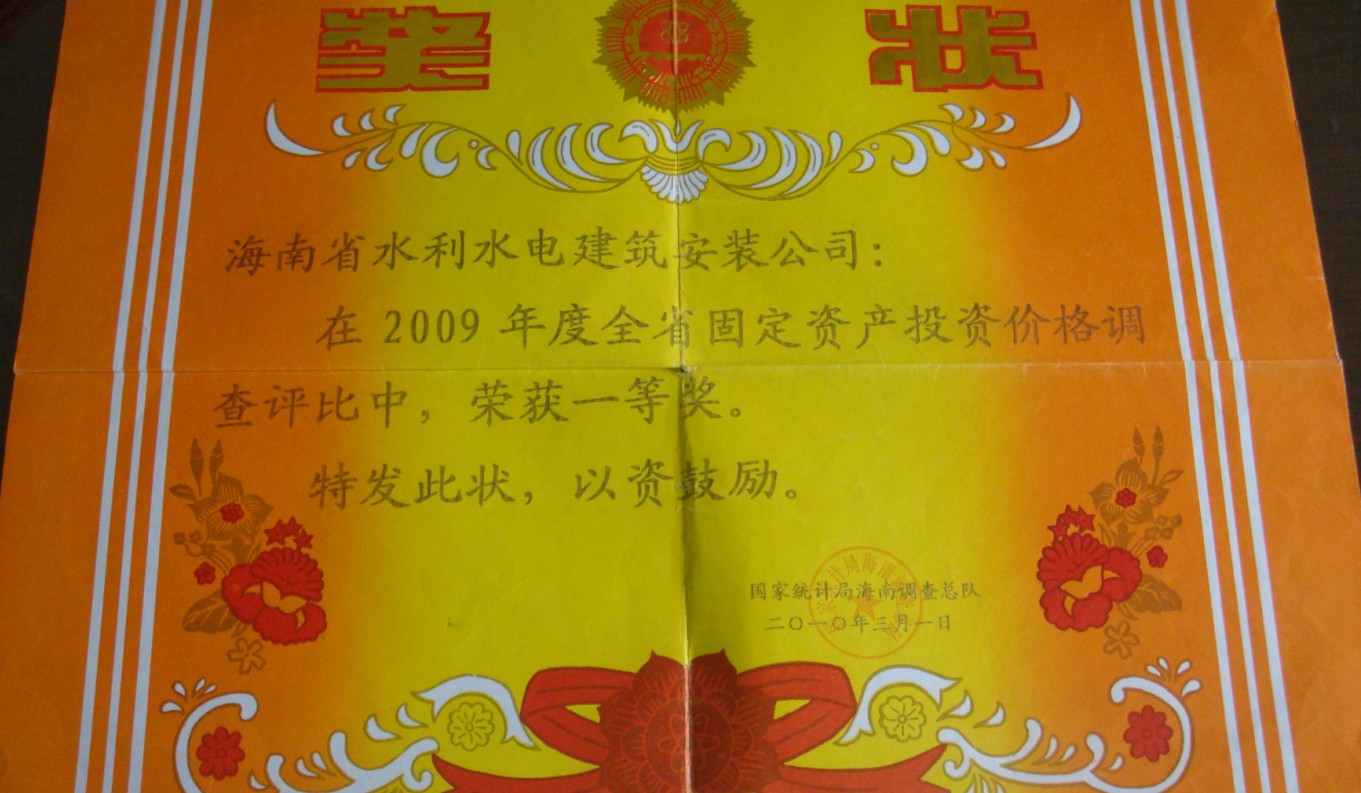 奖状
海南省水利水电建筑安装公司：
在 2009 年度全省固定资产投资价格调
查评比中，荣获一等奖。
特发此状，以资鼓励。
国家统计局海南调查总队
二〇一〇年三月一日